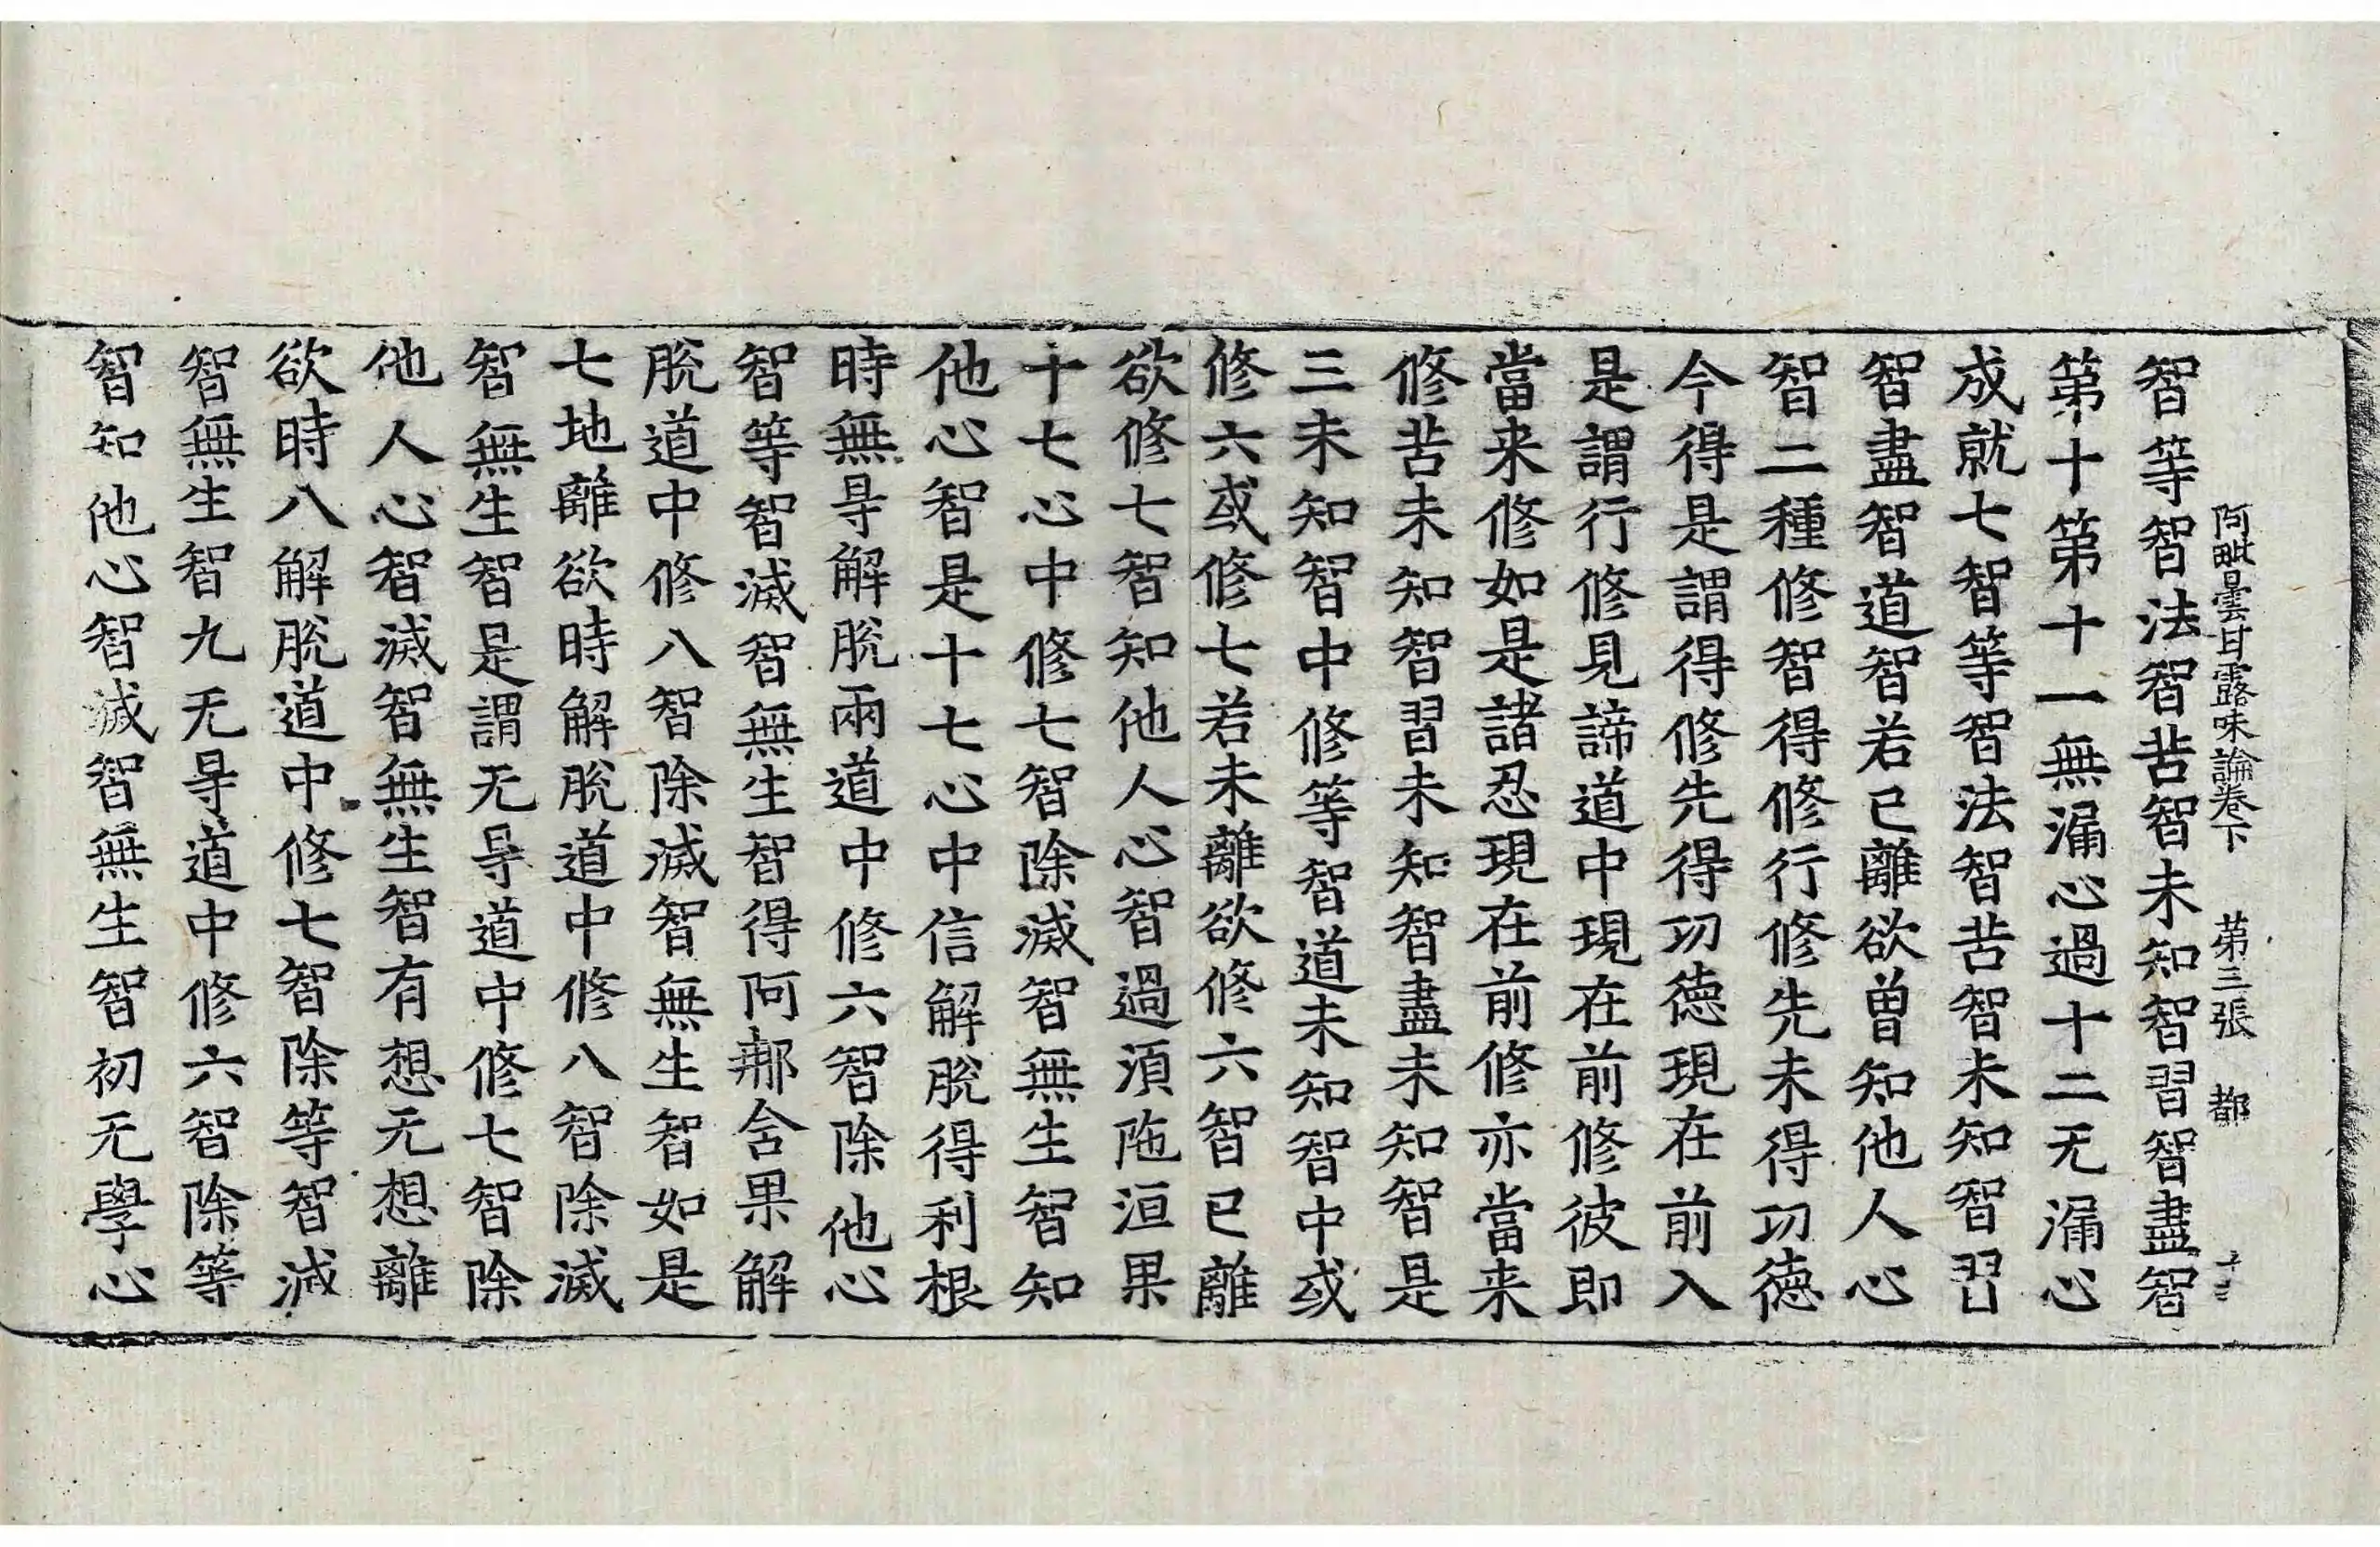 阿毗曇甘露味論卷下　第三張　都
智等智法智苦智未知智習智盡智
第十第十一無漏心過十二无漏心
成就七智等智法智苦智未知智習
智盡智道智若已離欲曾知他人心
智二種修智得修行修先未得㓛德
今得是謂得修先得㓛德現在前入
是謂行修見諦道中現在前修彼即
當来修如是諸忍現在前修亦當来
修苦未知智習未知智盡未知智是
三未知智中修等智道未知智中或
修六或修七若未離欲修六智已離
欲修七智知他人心智過湏陁洹果
十七心中修七智除滅智無生智知
他心智是十七心中信解脫得利根
時無㝵解脫兩道中修六智除他心
智等智滅智無生智得阿那含果解
脫道中修八智除滅智無生智如是
七地離欲時解脫道中修八智除滅
智無生智是謂无㝵道中修七智除
他人心智滅智無生智有想无想離
欲時八解脫道中修七智除等智滅
智無生智九无㝵道中修六智除等
智知他心智滅智無生智初无學心